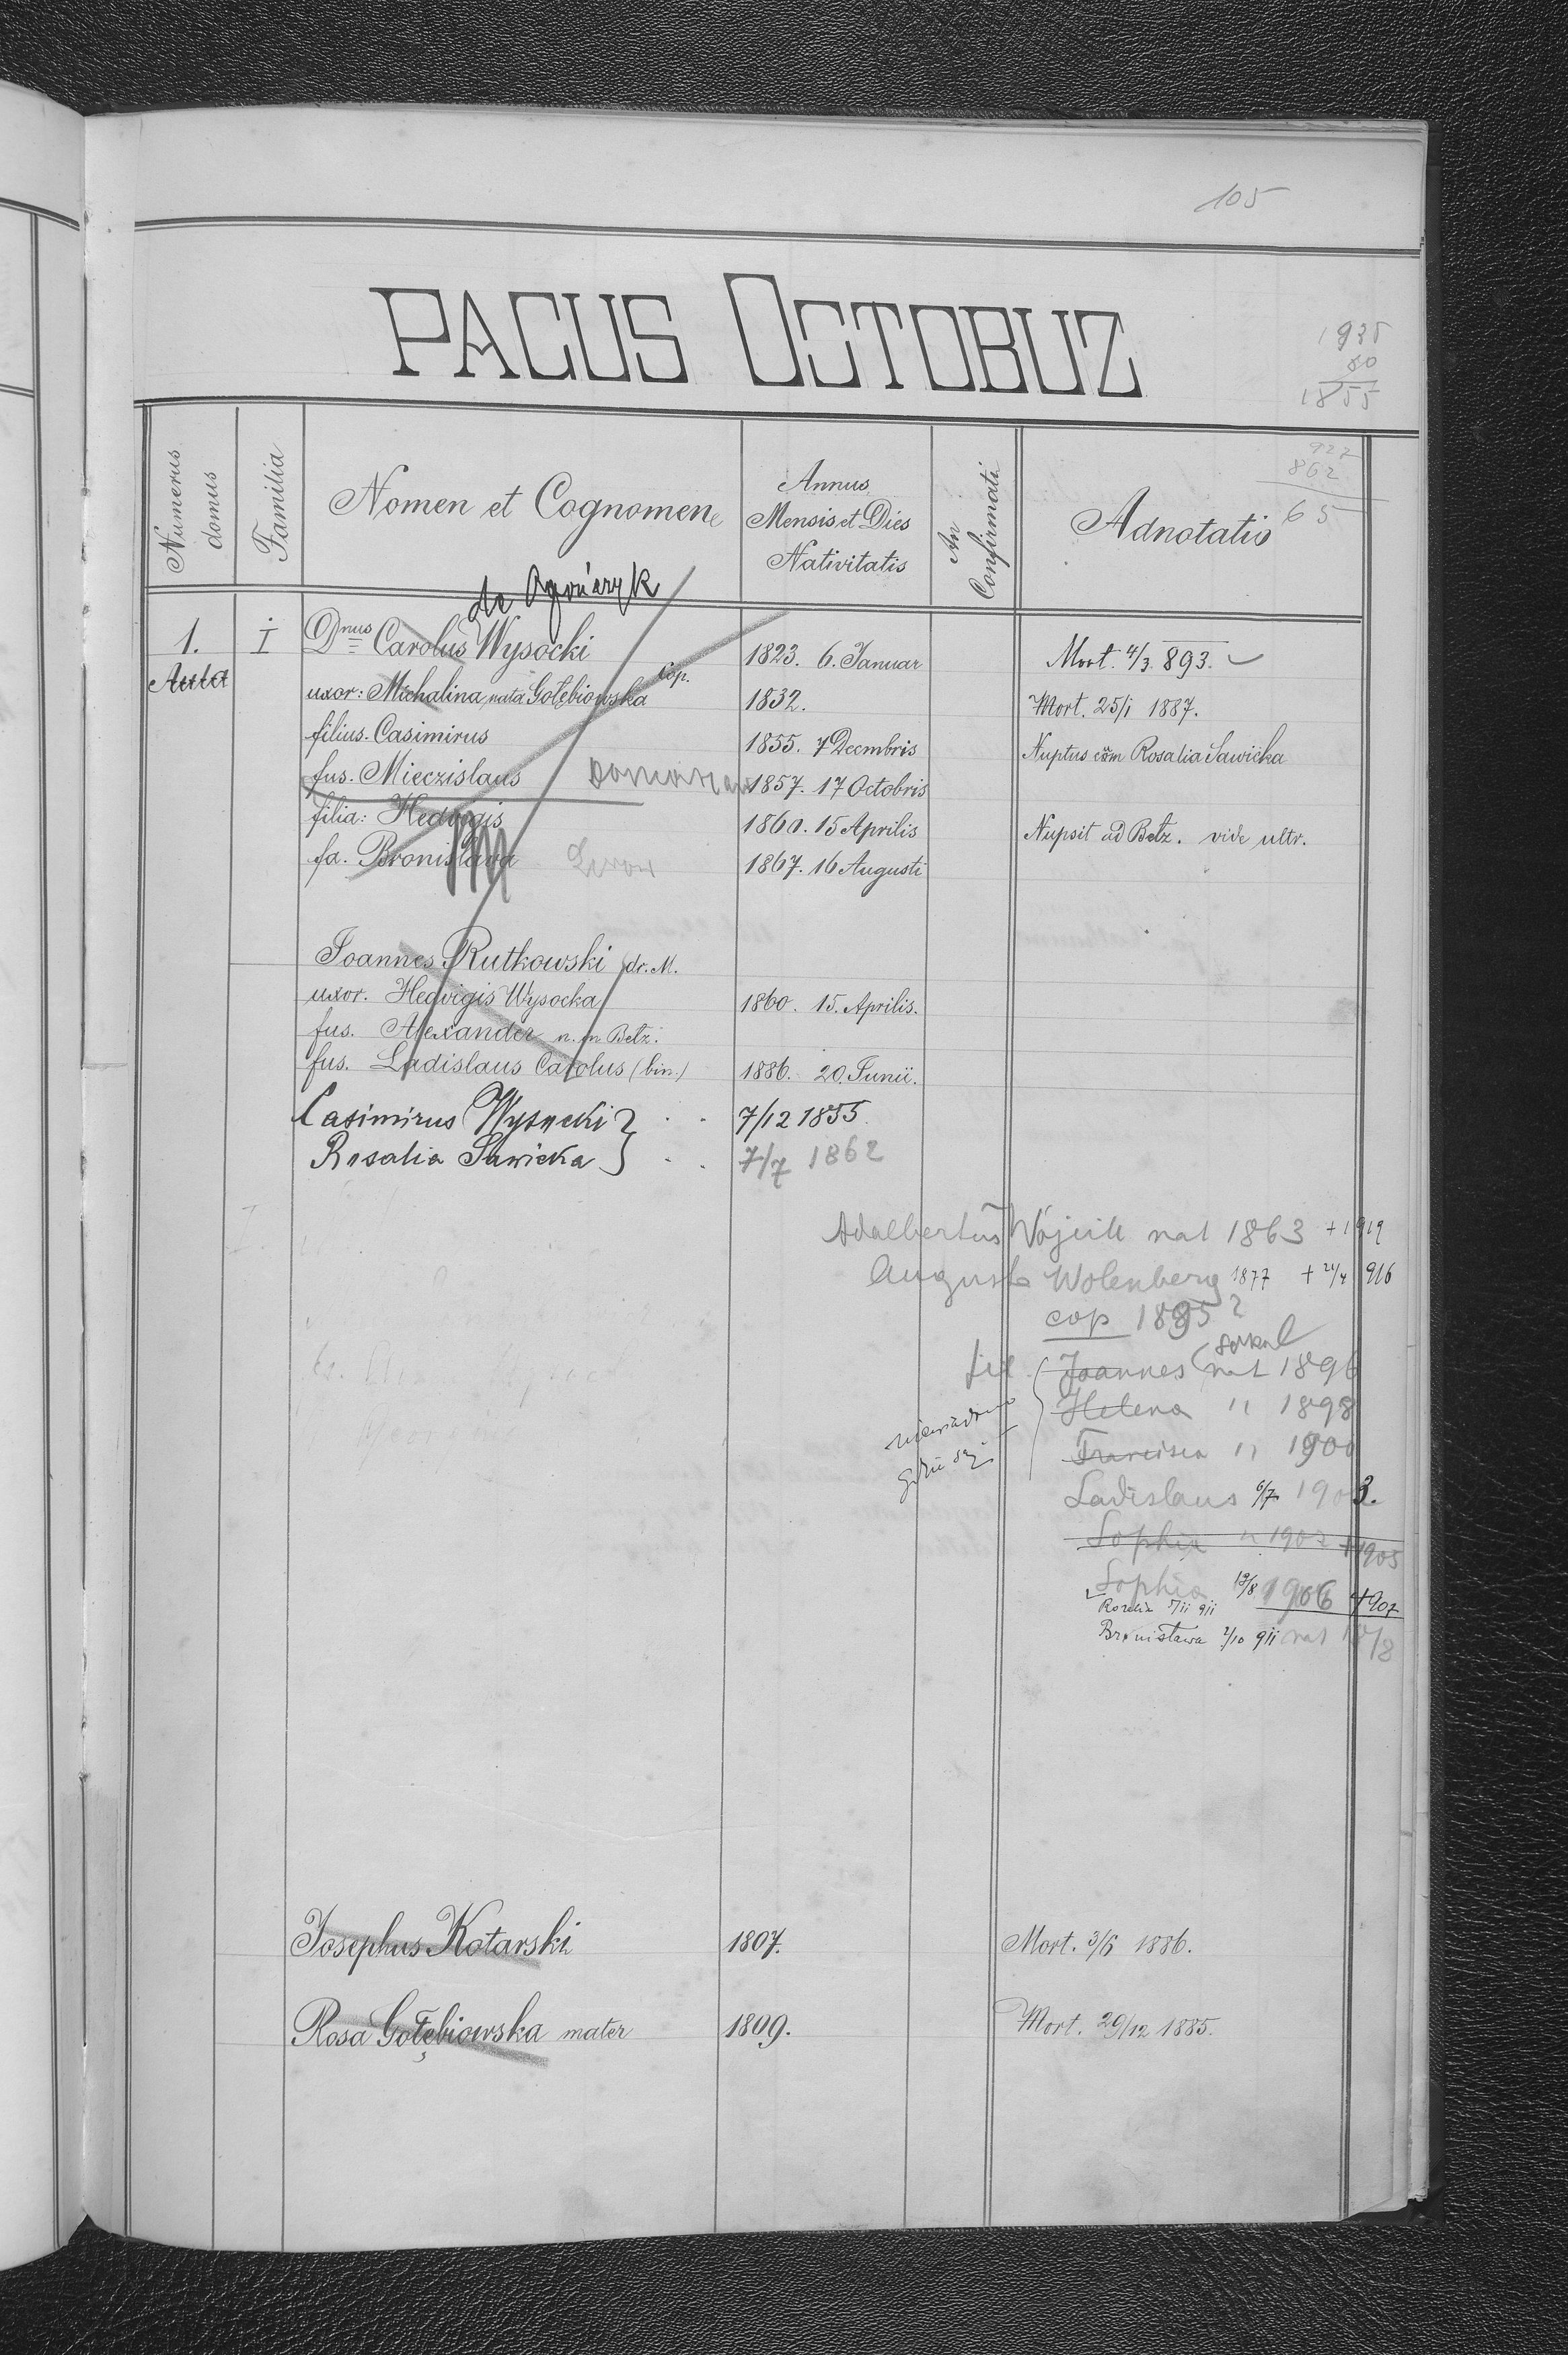 105
PAGUS OCTOBUZ
1935
80
1855
927
862
65
Numerus domus
Familia
Nomen et Cognomen
Annus Mensis et Dies Nativitatis
An Confirmati
Adnotatio
de
1. I Dnus Carolus Wysocki 1823. 6. Januar Mort. 4/3. 893.
Aula uxor: Michalina nata Gołębiowska cop. 1832. Mort. 25/1 1887.
filius. Casimirus 1855. 7 Decmbris Nuptus cum Rosalia Sawicka
fus. Mieczislaus 1857. 17 Octobris
filia: Hedvigis 1860. 15 Aprilis Nupsit ad Betz. vide ultr.
fa. Bronislava 1867. 16 Augusti
Joannes Rutkowski dr. M.
uxor. Hedvigis Wysocka 1860. 15. Aprilis.
fus. Alexander n. in Betz.
fus. Ladislaus Carolus (bin.) 1886. 20. Junii.
Casimirus Wysocki } . . 7/12 1855
Rosalia Sawicka } . . 7/7 1862
Adalbertus Wójcik nat 1863 + 1919
Augusta Wolenberg 1877 + 24/4 916
cop 1895?
fil. Joannes nat 1896
Helena " 1898
niewiadomo gdzie są
Francisca " 1900
Ladislaus 6/7 1903.
Sophia " 1902 + 1905
Sophia 19/8 1906 + 907
Rozalia 7/11 911
Bronisława 2/10 911 nat
Josephus Kotarski 1807. Mort. 3/6 1886.
Rosa Gołębiowska mater 1809. Mort. 29/12 1885.